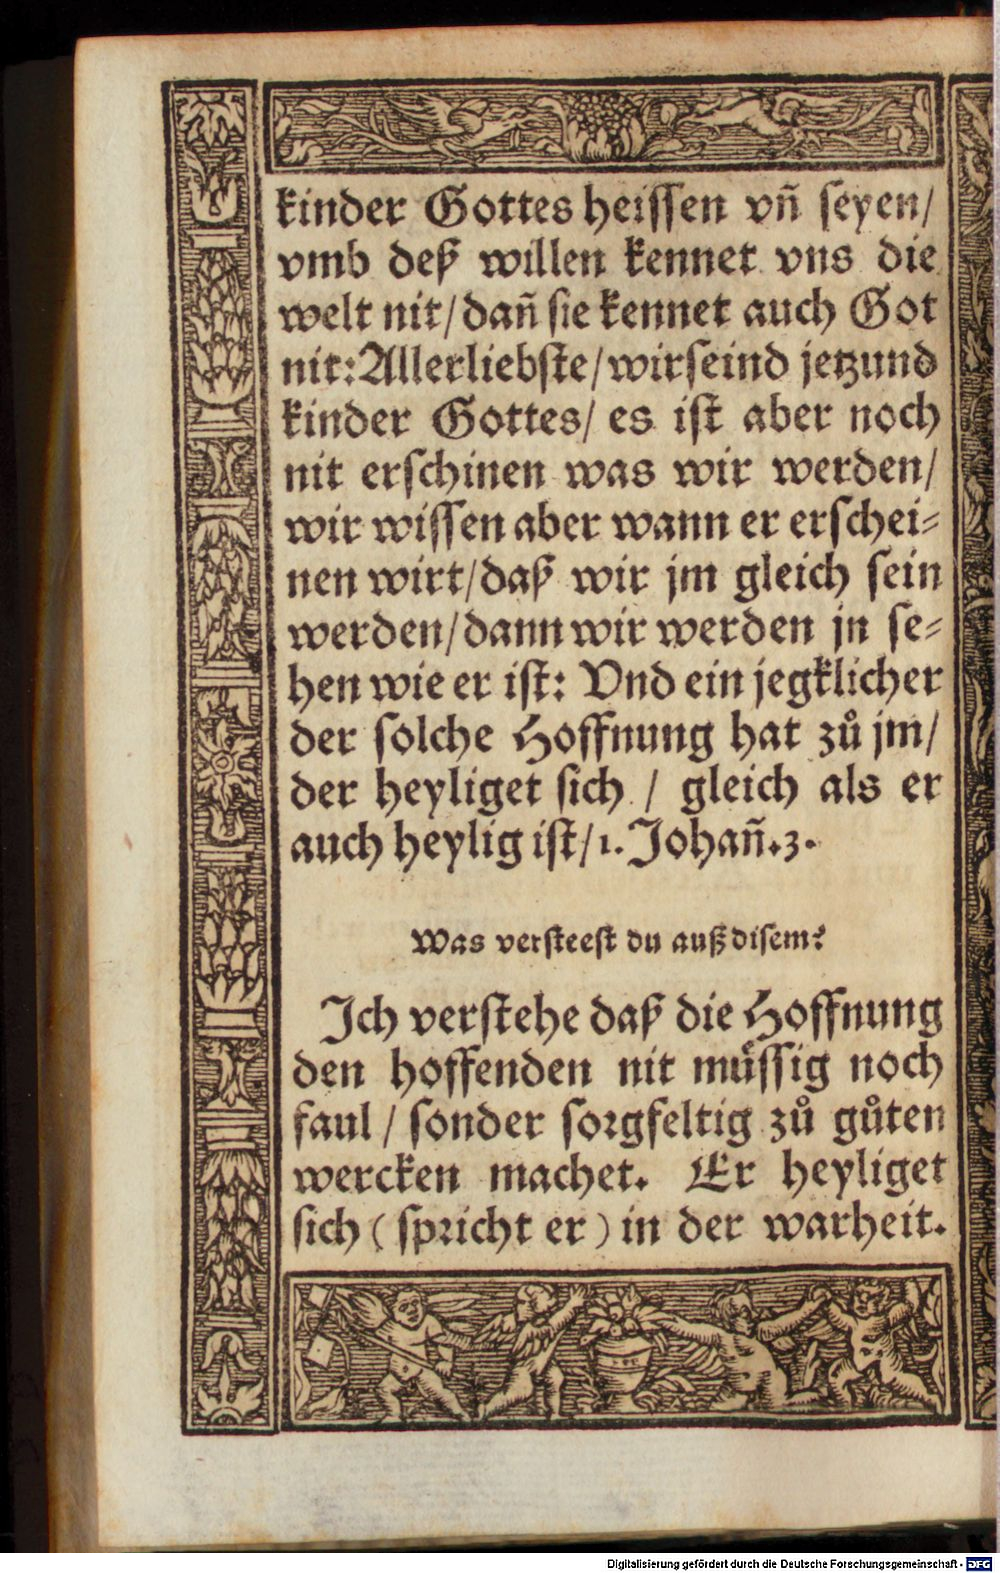 kinder Gottes heissen vñ seyen/
vmb deß willen kennet vns die
welt nit/dañ sie kennet auch Got
nit: Allerliebste/wir seind jetzund
kinder Gottes/ es ist aber noch
nit erschinen was wir werden/
wir wissen aber wann er erschei⸗
nen wirt/daß wir jm gleich sein
werden/dann wir werden jn se⸗
hen wie er ist: Vnd ein jegklicher
der solche Hoffnung hat zů jm/
der heyliget sich / gleich als er
auch heylig ist/1. Johañ.3.
Was versteest du auß disem?
Ich verstehe daß die Hoffnung
den hoffenden nit müssig noch
faul / sonder sorgfeltig zů gůten
wercken machet. Er heyliget
sich ( spricht er ) in der warheit.
Digitalisierung gefördert durch die Deutsche Forschungsgemeinschaft - DFG